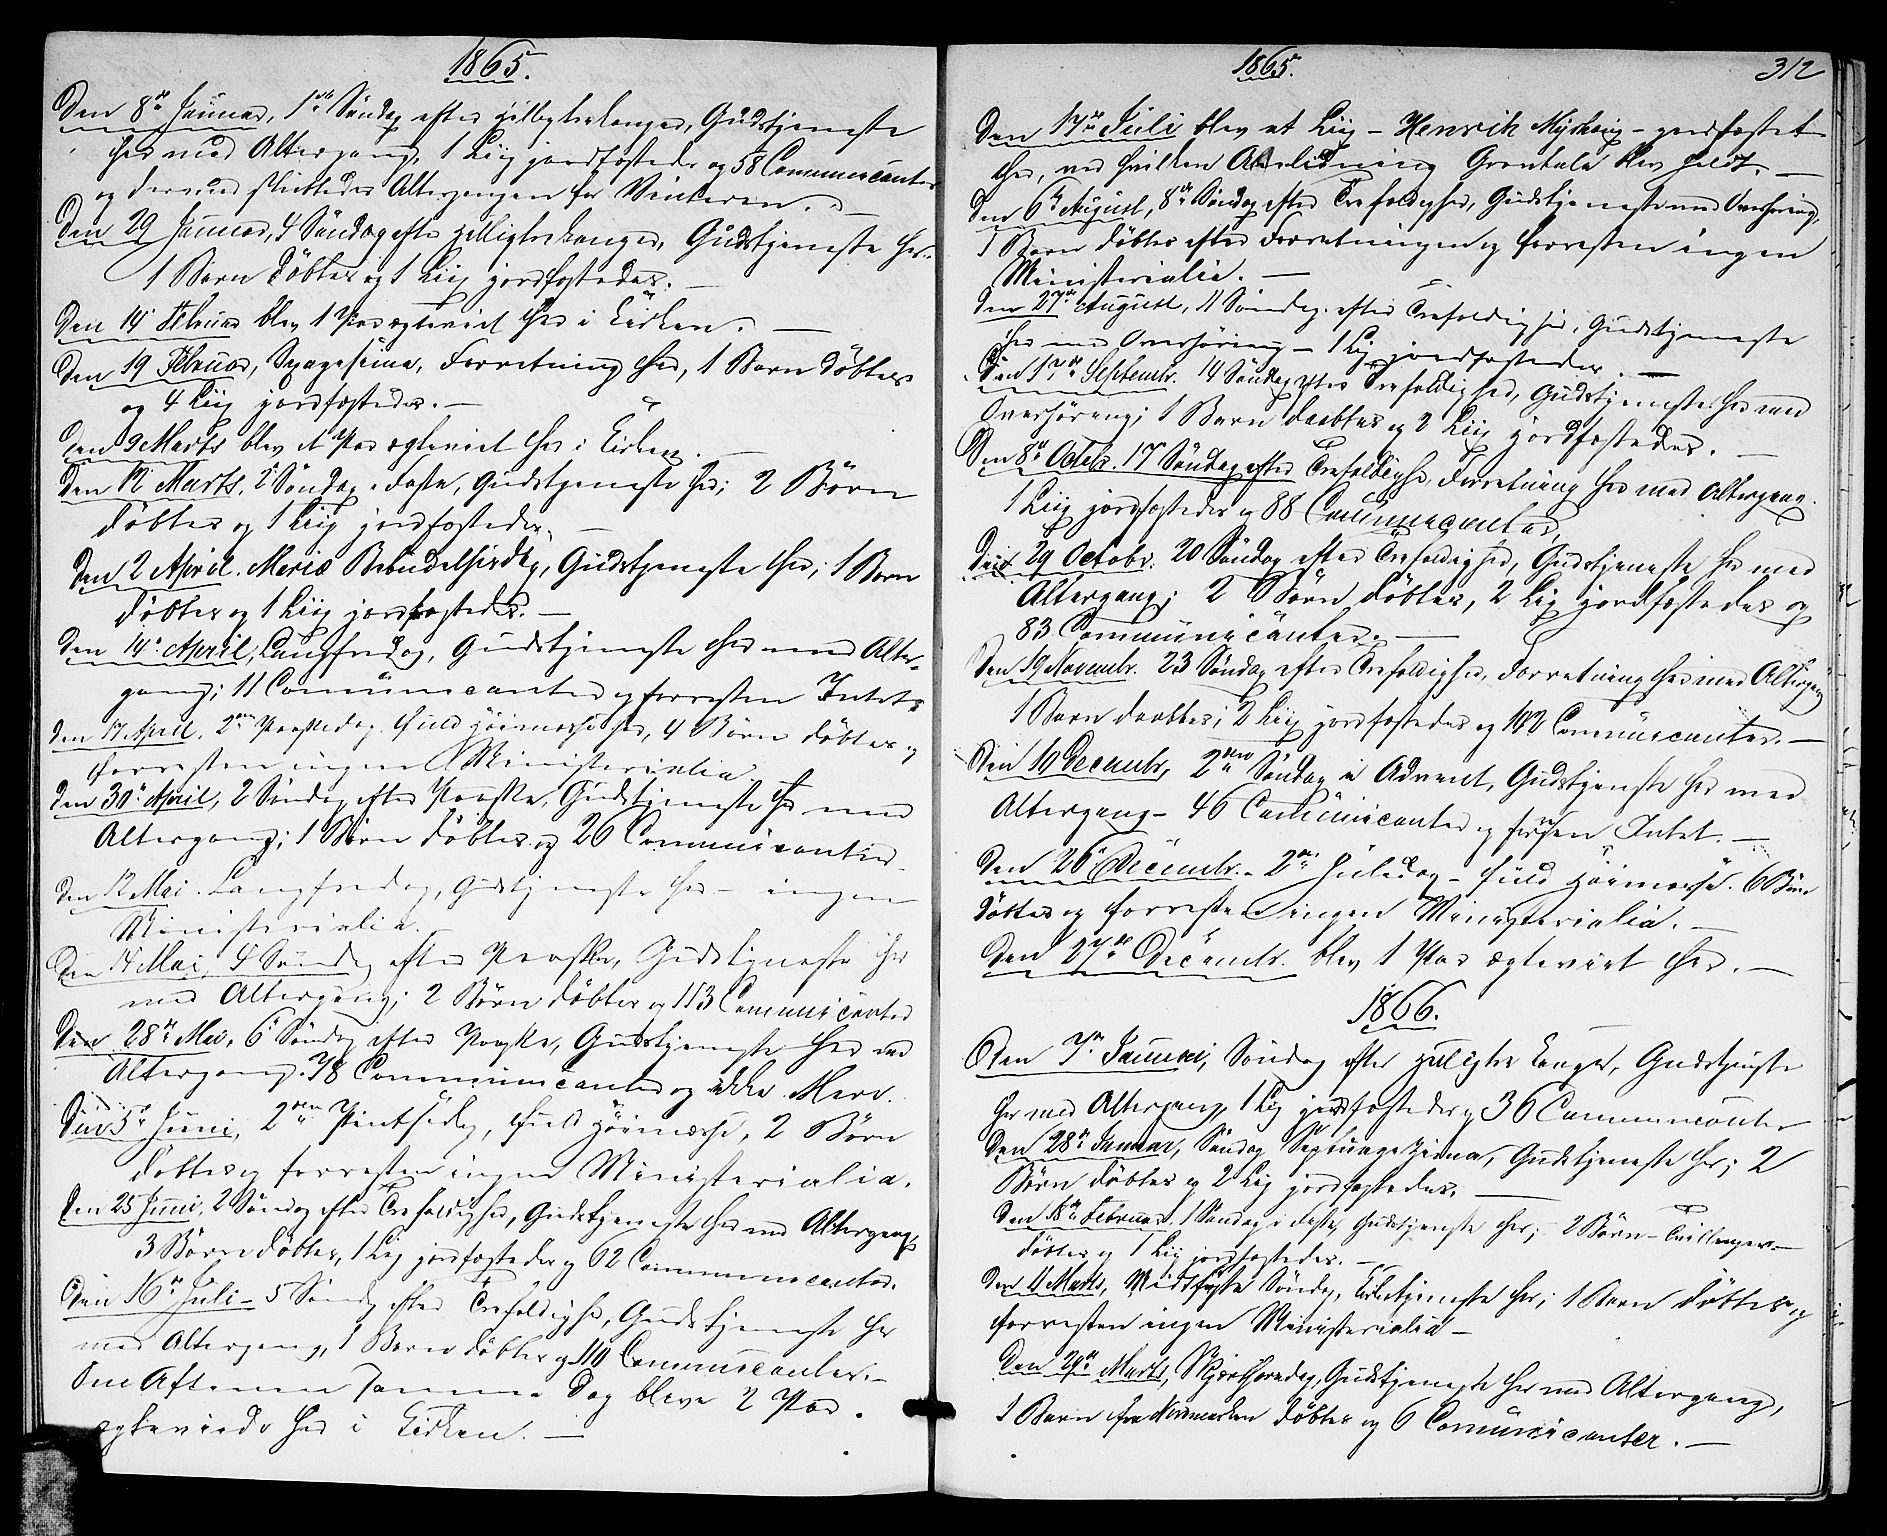 1865.
Den 8de Januar, 1ste Søndag efter Helligtrekonger, Gudstjeneste
her med Altergang, 1 Liig jordfæstedes og 58 Communicanter
og dermed sluttedes Altergangen for Vinteren. —
Den 29 Januar, 4 Søndag efter Helligtrekonger, Gudstjeneste her.
1 Barn døbtes og 1 Liig jordfæstedes. —
Den 14 Februar blev 1 Par ægteviet her i Kirken. —
Den 19 Februar, Sexagesima, Forretning her, 1 Barn døbtes
og 4 Liig jordfæstedes. —
Den 9 Marts blev et Par ægteviet her i Kirken. —
Den 12 Marts, 2 Søndag i Faste, Gudstjeneste her; 2 Børn
døbtes og 1 Liig jordfæstedes. —
Den 2 April. Mariæ Bebudelsesdag, Gudstjeneste her; 1 Barn
døbtes og 1 Liig jordfæstedes. —
Den 14de April, Langfredag, Gudstjeneste her med Alter-
gang; 11 Communicanter og forresten Intet.
Den 17 April. 2den Paaskedag. Fuld Høimesse her, 4 Børn døbtes og
forresten ingen Ministerialia
Den 30te April, 2 Søndag efter Paaske, Gudstjeneste her med
Altergang; 1 Barn døbtes og 26 Communicanter
Den 12 Mai. Gudstjeneste her — ingen
Ministerialia. —
Den 14 Mai, 4 Søndag efter Paaske, Gudstjeneste her
med Altergang; 2 Børn døbtes og 113 Communicanter
Den 28de Mai, 6 Søndag efter Paaske, Gudstjeneste her med
Altergang. 78 Communicanter og ikke Mere.
Den 5te Juni, 2den Pintsedag, Fuld Høimesse, 2 Børn
døbtes og forresten ingen Ministerialia.
Den 25 Juni, 2 Søndag efter Trefoldighed, Gudstjeneste her med Altergang,
3 Børn døbtes, 1 Liig jordfæstedes og 62 Communicanter.
Den 16de Juli — 5 Søndag efter Trefoldighed, Gudstjeneste her
med Altergang, 1 Barn døbtes og 110 Communicanter. —
Om Aftenen samme Dag bleve 2 Par
ægteviede her i Kirken. —
1865.
312
Den 17de Juli blev et Liig — Henrik — jordfæstet
her, ved hvilken Anledning Gravtale blev holdt. —
Den 6te August, 8de Søndag efter Trefoldighed, Gudstjeneste med Overhøring,
1 Barn døbtes efter Forretningen og forresten ingen
Ministerialia. —
Den 27de August, 11 Søndag efter Trefoldighed, Gudstjeneste
her med Overhøring — 1 Liig jordfæstedes. —
Den 17de Septembr. 14 Søndag efter Trefoldighed, Gudstjeneste her med
Overhøring; 1 Barn døbtes og 2 Liig jordfæstedes. —
Den 8de Octobr. 17 Søndag efter Trefoldighed, Forretning her med Altergang.
1 Liig jordfæstedes og 88 Communicanter,
Den 29 Octobr. 20 Søndag efter Trefoldighed, Gudstjeneste her med
Altergang; 2 Børn døbtes, 2 Liig jordfæstedes og
83 Communicanter. —
Den 19 Novembr. 23 Søndag efter Trefoldighed, Forretning her med Altergang
1 Barn døbtes; 2 Liig jordfæstedes og Communicanter. —
Den 10 Decembr, 2den Søndag i Advent, Gudstjeneste her med
Altergang — 46 Communicanter og forresten Intet. —
Den 26 Decembr. — 2den Juledag — Fuld Høimesse. 6 Børn
døbtes og forresten ingen Ministerialia. —
Den 27de Decembr. blev 1 Par ægteviet her. —
1866.
Den 7de Januar, Søndag efter Helligtre Konger, Gudstjeneste
her med Altergang, 1 Liig jordfæstedes og 36 Communicanter
Den 28de Januar, Søndag Septuagesima, Gudstjeneste her; 2
Børn døbtes og 2 Liig jordfæstedes. —
Den 18de Februar. 1 Søndag i Faste, Gudstjeneste her; 2 Børn — Tvillinger —
døbtes og 1 Liig jordfæstedes. —
Den 11 Marts, Midtfaste Søndag, Gudstjeneste her; 1 Barn døbtes, og
forresten ingen Ministerialia —
Den 29de Marts, Skjærthorsdag, Gudstjeneste her med Altergang,
1 Barn fra døbtes og 6 Communicanter. —